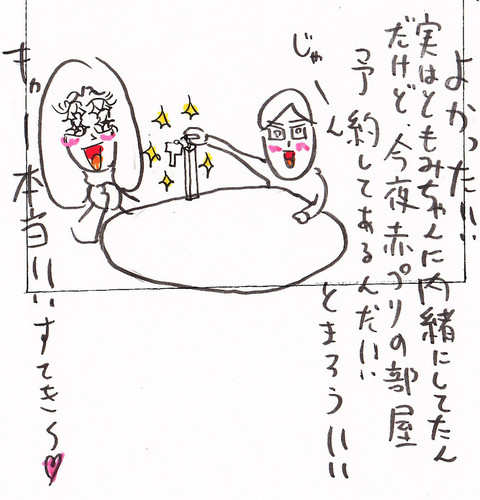 よかった!!
実はともみちゃんに内緒にしてたん
だけど、今夜赤プリの部屋
予約してあるんだ!!
とまろう!!
じゃーん
キャー本当!!すてき〜♡